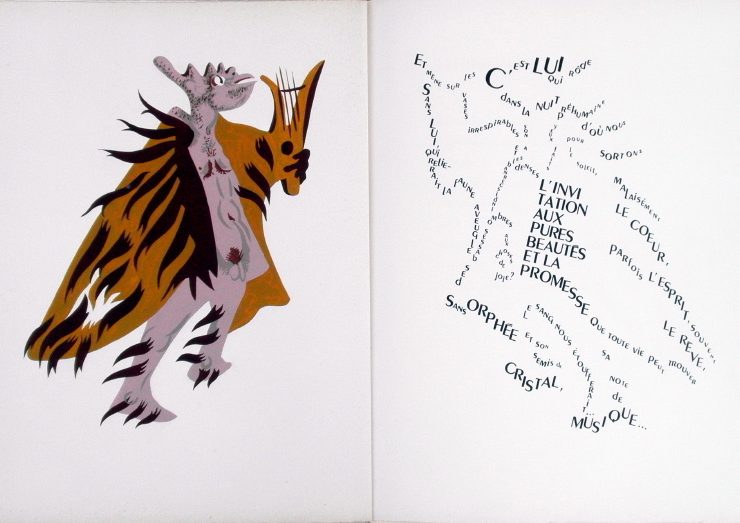 C'EST LUI
QUI RÔDE
DANS LA NUIT PRÉHUMAINE
D'OÙ NOUS
SORTONS
MALAISÉMENT
LE COEUR,
PARFOIS L'ESPRIT, SOUVENT
LE RÊVE,
ET MÈNE SUR LES
VASES
IRRESPIRABLES
POUR
LE
SOLEIL,
L'INVI
TATION
AUX
PURES
BEAUTÉS
ET LA
PROMESSE QUE TOUTE VIE PEUT TROUVER
SA
NOTE
DE
MUSIQUE...
SANS LUI,
QUI
RELIE-
RAIT LA FAUNE
AVEUGLE
DES
OMBRES
DENSES
AUX
CHOSES
DE
JOIE?
SANS ORPHÉE
ET SON
SEMIS DE
CRISTAL,
LE SANG NOUS ÉTOUFFERAIT...